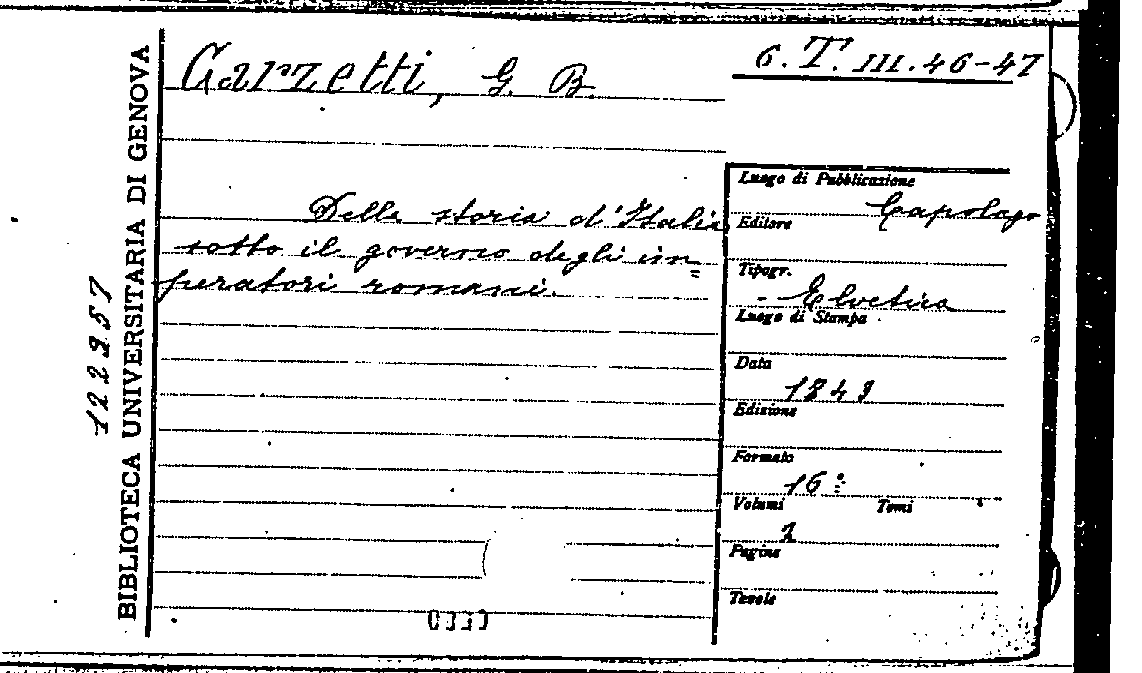 Garzetti, G. B.
6. T. III. 46-47
Della storia d'Italia
sotto il governo degli im=
peratori romani.
Luogo di Pubblicazione
Capolago
Editore
Tipogr.
Elvetica
Luogo di Stampa
Data
1843
Edizione
Formato
16º
Volumi Tomi
2
Pagine
Tavole
BIBLIOTECA UNIVERSITARIA DI GENOVA